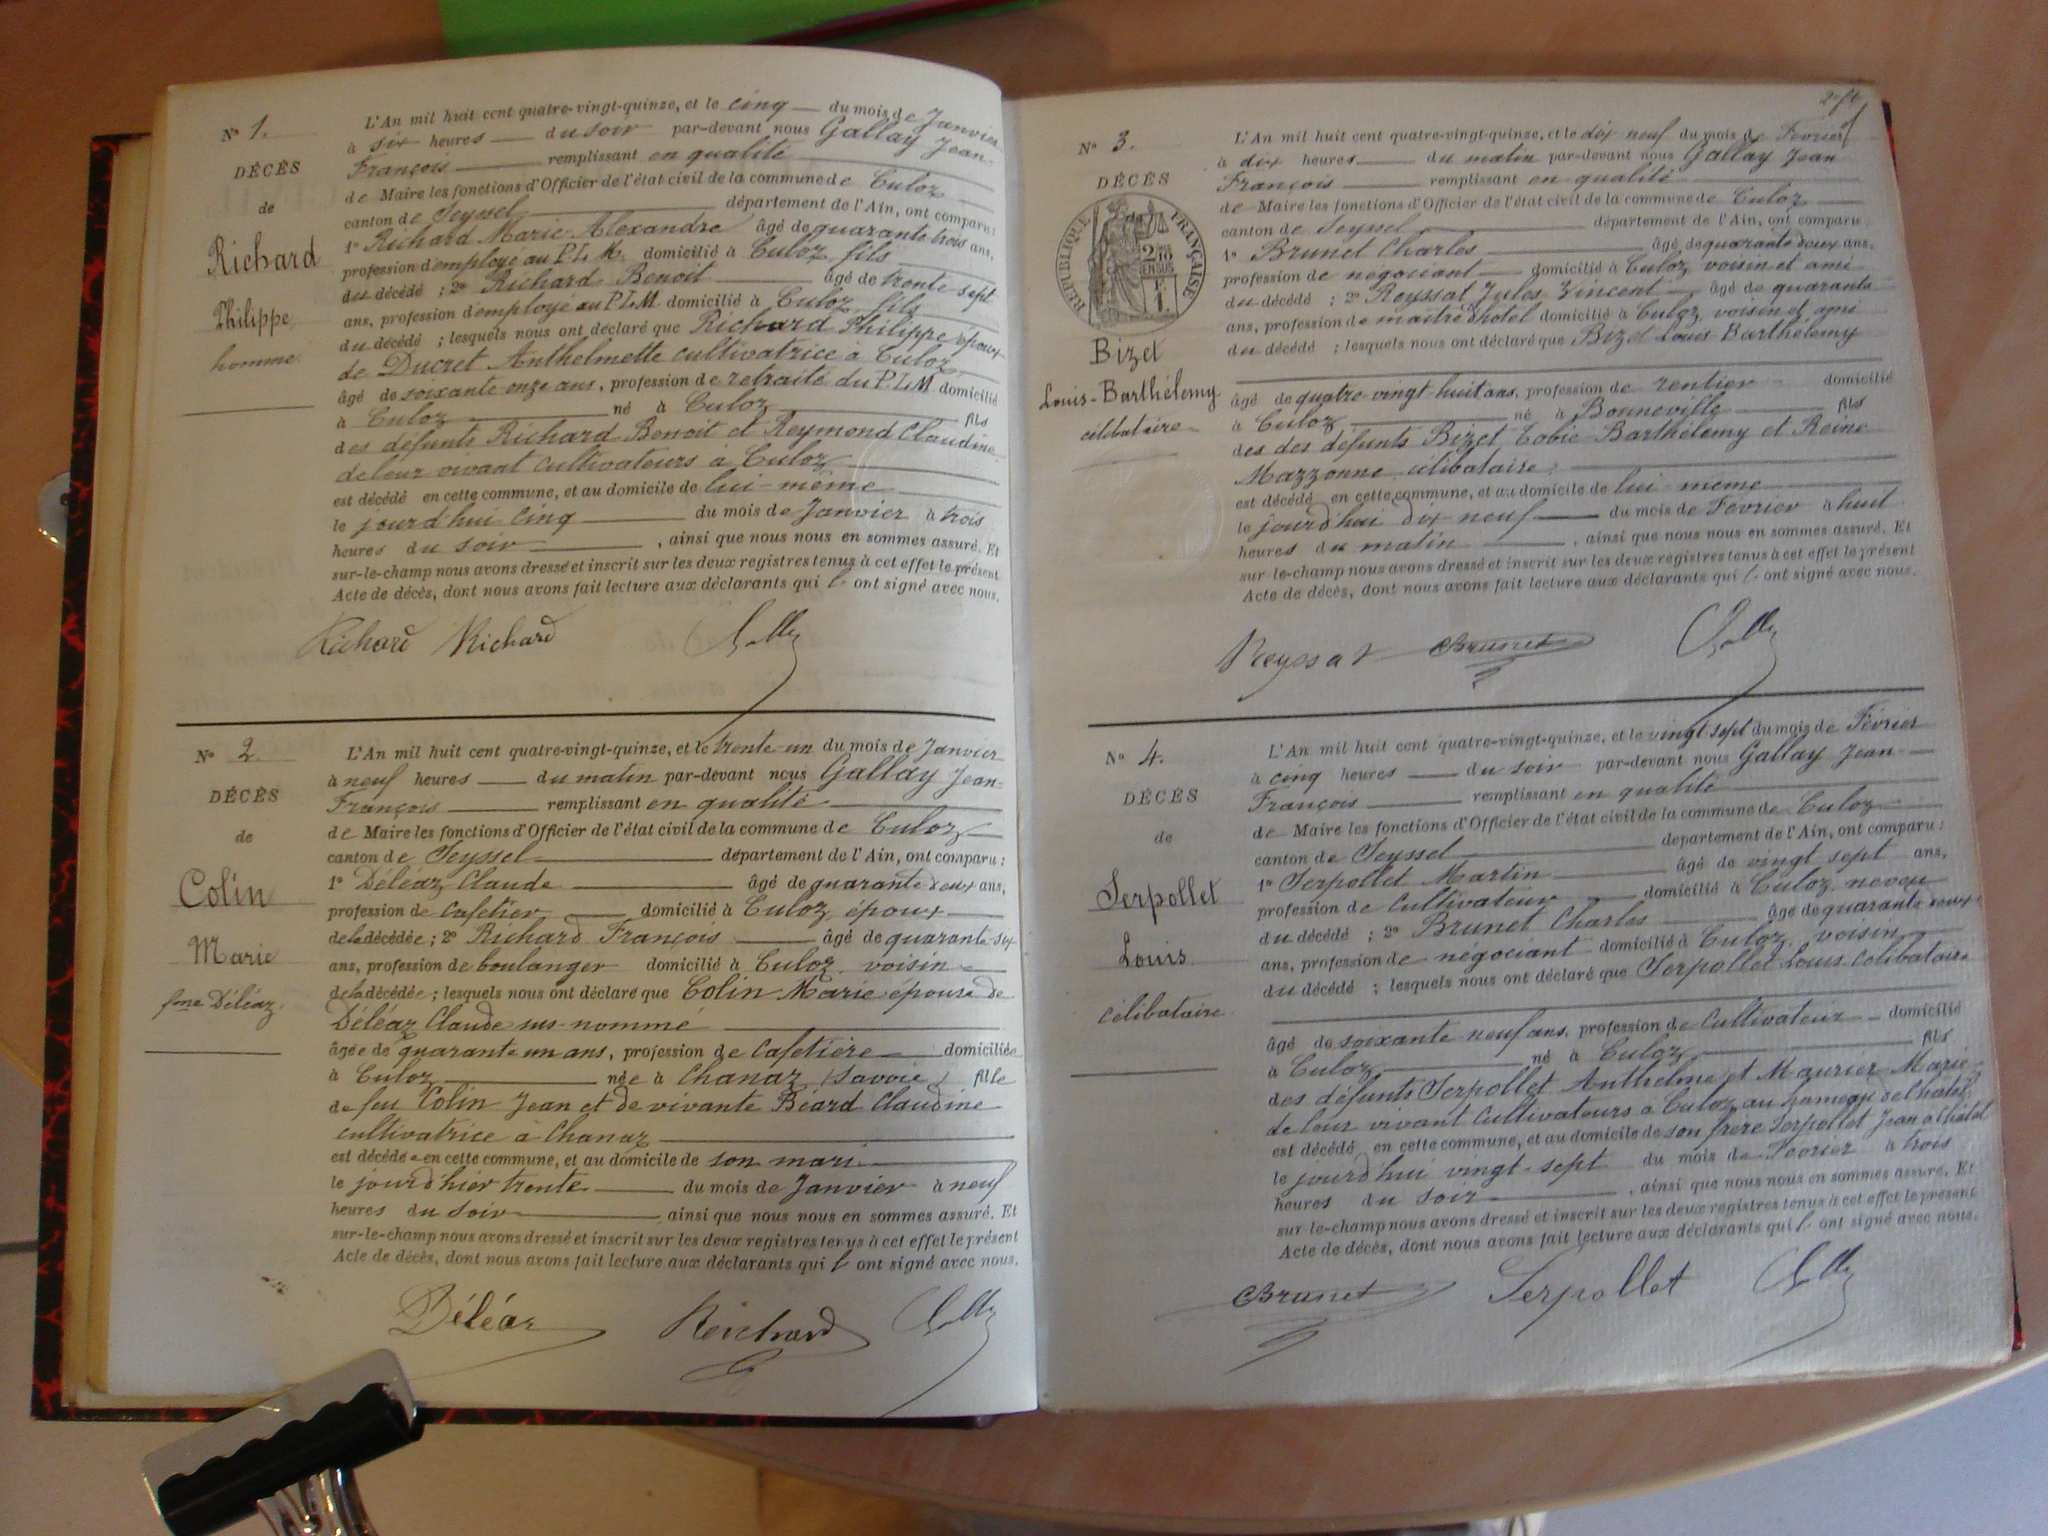 N° 1.
DÉCÈS
de
Richard
Philippe
homme
L'An mil huit cent quatre-vingt-quinze, et le cinq du mois de Janvier
à six heures du soir par-devant nous Gallay Jean-
François remplissant en qualité
de Maire les fonctions d'Officier de l'état civil de la commune de Culoz
canton de Seyssel département de l'Ain, ont comparu:
1° Richard Marie Alexandre âgé de quarante trois ans,
profession d'employé au P.L.M. domicilié à Culoz, fils
du décédé ; 2° Richard Benoit âgé de trente sept
ans, profession d'employé au P.L.M. domicilié à Culoz, fils
du décédé ; lesquels nous ont déclaré que Richard Philippe époux
de Ducret Anthelmette cultivatrice à Culoz
âgé de soixante onze ans, profession de retraité du P.L.M domicilié
à Culoz né à Culoz fils
des défunts Richard Benoit et Reymond Claudine
de leur vivant cultivateurs à Culoz
est décédé en cette commune, et au domicile de lui-même
le jourd'hui cinq du mois de Janvier à trois
heures du soir, ainsi que nous nous en sommes assuré. Et
sur-le-champ nous avons dressé et inscrit sur les deux registres tenus à cet effet le présent
Acte de décès, dont nous avons fait lecture aux déclarants qui l' ont signé avec nous.
Richard Richard
N° 2.
DÉCÈS
de
Colin
Marie
fme Déléaz.
L'An mil huit cent quatre-vingt-quinze, et le trente-un du mois de Janvier
à neuf heures du matin par-devant nous Gallay Jean-
François remplissant en qualité
de Maire les fonctions d'Officier de l'état civil de la commune de Culoz
canton de Seyssel département de l'Ain, ont comparu :
1° Déléaz Claude âgé de quarante deux ans,
profession de cafetier domicilié à Culoz, époux
de la décédée ; 2° Richard François âgé de quarante-six
ans, profession de boulanger domicilié à Culoz voisin
de la décédée ; lesquels nous ont déclaré que Colin Marie épouse de
Déléaz Claude sus-nommé
âgée de quarante un ans, profession de Cafetière domiciliée
à Culoz née à Chanaz (Savoie) fille
de feu Colin Jean et de vivante Béard Claudine
cultivatrice à Chanaz
est décédée en cette commune, et au domicile de son mari
le jourd'hier trente du mois de Janvier à neuf
heures du soir, ainsi que nous nous en sommes assuré. Et
sur-le-champ nous avons dressé et inscrit sur les deux registres tenus à cet effet le présent
Acte de décès, dont nous avons fait lecture aux déclarants qui l' ont signé avec nous.
Déléaz Richard
N° 3.
DÉCÈS
RÉPUBLIQUE FRANÇAISE
Bizet
Louis-Barthélemy
célibataire
L'An mil huit cent quatre-vingt-quinze, et le dix neuf du mois de Février
à dix heures du matin par-devant nous Gallay Jean
François remplissant en qualité
de Maire les fonctions d'Officier de l'état civil de la commune de Culoz
canton de Seyssel département de l'Ain, ont comparu
1° Brunet Charles âgé de quarante deux ans,
profession de négociant domicilié à Culoz, voisin et ami
du décédé ; 2° Reyssat Jules Vincent âgé de quarante
ans, profession de maître d'hotel domicilié à Culoz, voisin et ami
du décédé ; lesquels nous ont déclaré que Bizet Louis Barthélemy
âgé de quatre-vingt-huit ans, profession de rentier domicilié
à Culoz né à Bonneville fils
des des défunts Bizet Tobie Barthélemy et Reine
Mazzonne célibataire ;
est décédé en cette commune, et au domicile de lui-même
le jourd'hui dix neuf du mois de Février à huit
heures du matin, ainsi que nous nous en sommes assuré. Et
sur-le-champ nous avons dressé et inscrit sur les deux registres tenus à cet effet le présent
Acte de décès, dont nous avons fait lecture aux déclarants qui l' ont signé avec nous.
Reyssat Brunet
N° 4.
DÉCÈS
de
Serpollet
Louis
célibataire
L'An mil huit cent quatre-vingt-quinze, et le vingt sept du mois de Février
à cinq heures du soir par-devant nous Gallay Jean-
François remplissant en qualité
de Maire les fonctions d'Officier de l'état civil de la commune de Culoz
canton de Seyssel département de l'Ain, ont comparu :
1° Serpollet Martin âgé de vingt sept ans,
profession de cultivateur domicilié à Culoz neveu
du décédé ; 2° Brunet Charles âgé de quarante deux
ans, profession de négociant domicilié à Culoz, voisin
du décédé ; lesquels nous ont déclaré que Serpollet Louis Célibataire
âgé de soixante neuf ans, profession de Cultivateur domicilié
à Culoz né à Culoz fils
des défunts Serpollet Anthelme et Maurier Marie
de leur vivant cultivateurs à Culoz au hameau de Châtel
est décédé en cette commune, et au domicile de son frère Serpollet Jean à Châtel
le jourd'hui vingt-sept du mois de Février à trois
heures du soir, ainsi que nous nous en sommes assuré. Et
sur-le-champ nous avons dressé et inscrit sur les deux registres tenus à cet effet le présent
Acte de décès, dont nous avons fait lecture aux déclarants qui l' ont signé avec nous.
Brunet Serpollet